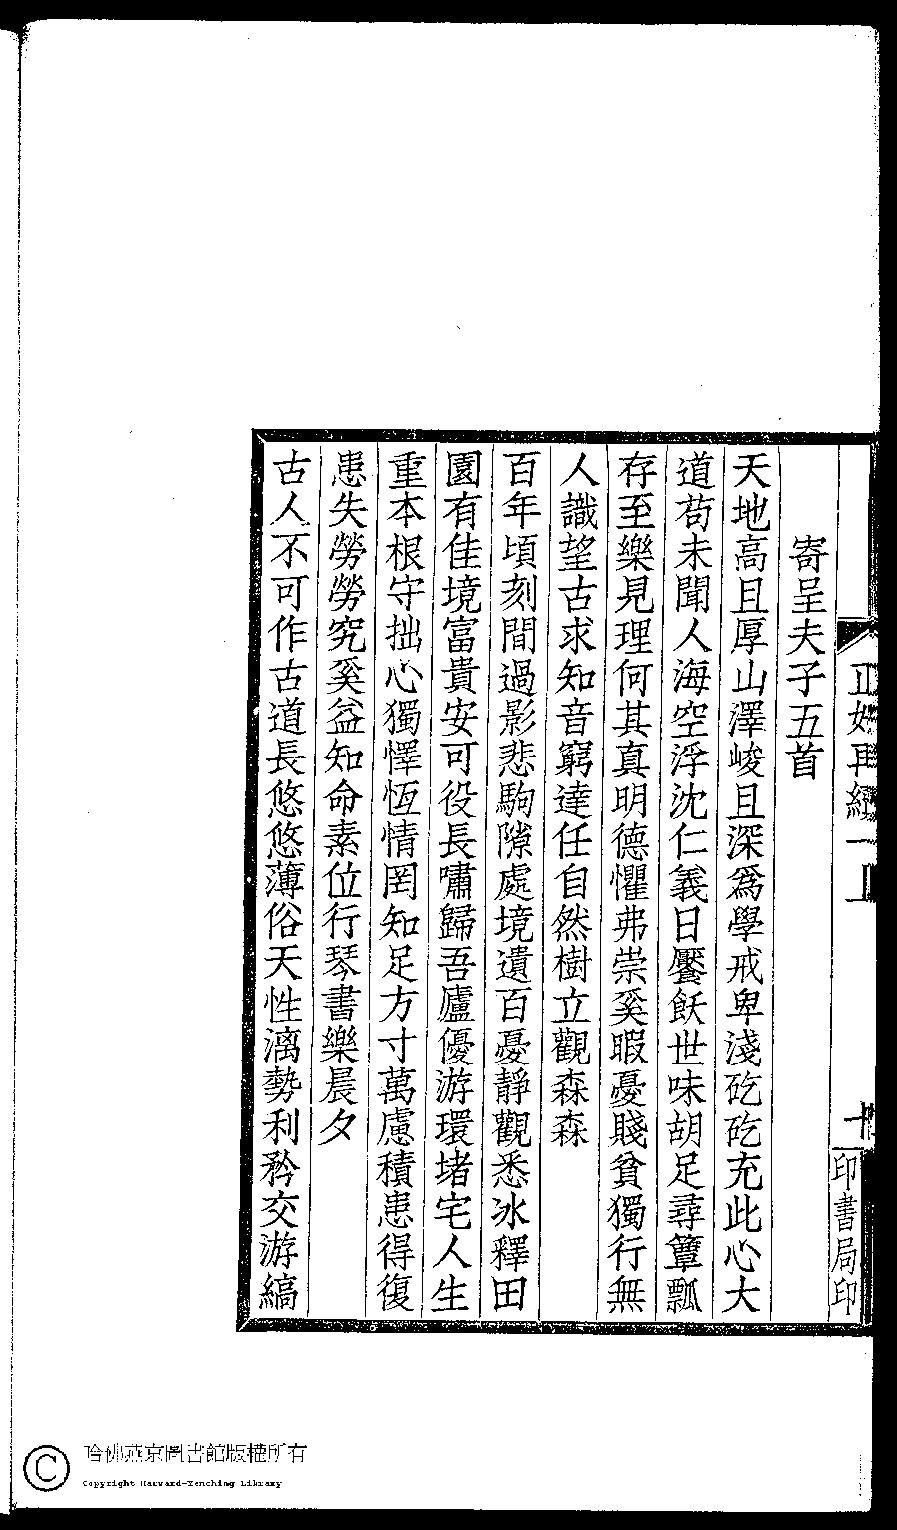 寄呈夫子五首
天地高且厚山澤峻且深爲學戒卑淺矻矻充此心大
道苟未聞人海空浮沈仁義日饜飫世味胡足尋簞瓢
存至樂見理何其真明德懼弗崇奚暇憂賤貧獨行無
人識望古求知音窮達任自然樹立觀森森
百年頃刻間過影悲駒隙處境遺百憂靜觀悉冰釋田
園有佳境富貴安可役長嘯歸吾廬優游環堵宅人生
重本根守拙心獨懌恆情罔知足方寸萬慮積患得復
患失勞勞究奚益知命素位行琴書樂晨夕
古人不可作古道長悠悠薄俗天性漓勢利矜交游縞
印書局印
哈佛燕京圖書館版權所有
Copyright Harvard-Yenching Library